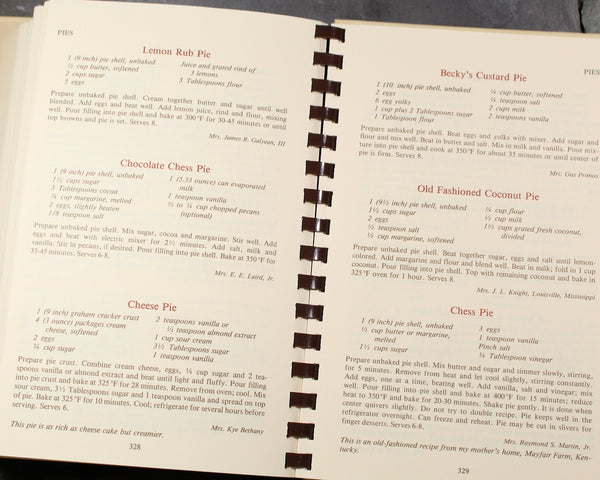 PIES
Lemon Rub Pie
1 (9 inch) pie shell, unbaked
½ cup butter, softened
2 cups sugar
5 eggs
Juice and grated rind of
3 lemons
3 Tablespoons flour
Prepare unbaked pie shell. Cream together butter and sugar until well
blended. Add eggs and beat well. Add lemon juice, rind and flour, mixing
well. Pour filling into pie shell and bake at 300°F for 30-45 minutes or until
top browns and pie is set. Serves 8.
Mrs. James R. Gulvean, III
Chocolate Chess Pie
1 (9 inch) pie shell, unbaked
1½ cups sugar
3 Tablespoons cocoa
¼ cup margarine, melted
2 eggs, slightly beaten
1/8 teaspoon salt
1 (5.33 ounce) can evaporated
milk
1 teaspoon vanilla
½ to ¾ cup chopped pecans
(optional)
Prepare unbaked pie shell. Mix sugar, cocoa and margarine. Stir well. Add
eggs and beat with electric mixer for 2½ minutes. Add salt, milk and
vanilla. Stir in pecans, if desired. Pour filling into pie shell. Bake at 350°F for
35-45 minutes. Serves 6-8.
Mrs. E. E. Laird, Jr.
Cheese Pie
1 (9 inch) graham cracker crust
4 (3 ounce) packages cream
cheese, softened
2 eggs
¾ cup sugar
2 teaspoons vanilla or
½ teaspoon almond extract
1 cup sour cream
3½ Tablespoons sugar
1 teaspoon vanilla
Prepare pie crust. Combine cream cheese, eggs, ¾ cup sugar and 2 tea-
spoons vanilla or almond extract and beat until light and fluffy. Pour filling
into pie crust and bake at 325°F for 28 minutes. Remove from oven; cool. Mix
sour cream, 3½ Tablespoons sugar and 1 teaspoon vanilla and spread on top
of pie. Bake at 325°F for 10 minutes. Cool; refrigerate for several hours before
serving. Serves 6.
Mrs. Kye Bethany
This pie is as rich as cheese cake but creamier.
328
PIES
Becky's Custard Pie
1 (10 inch) pie shell, unbaked
2 eggs
6 egg yolks
1 cup plus 2 Tablespoons sugar
1 Tablespoon flour
¼ cup butter, softened
¼ teaspoon salt
2 cups milk
2 teaspoons vanilla
Prepare unbaked pie shell. Beat eggs and yolks with mixer. Add sugar and
flour and mix well. Beat in butter and salt. Mix in milk and vanilla. Pour mix-
ture into pie shell and cook at 350°F for about 35 minutes or until center of
pie is firm. Serves 8.
Mrs. Gus Primos
Old Fashioned Coconut Pie
1 (9½ inch) pie shell, unbaked
1½ cups sugar
2 eggs
½ teaspoon salt
½ cup margarine, softened
¼ cup flour
½ cup milk
1½ cups grated fresh coconut,
divided
Prepare unbaked pie shell. Beat together sugar, eggs and salt until lemon-
colored. Add margarine and flour and blend well. Beat in milk; fold in 1 cup
coconut. Pour filling into pie shell. Top with remaining coconut and bake in
325°F oven for 1 hour. Serves 8.
Mrs. J. L. Knight, Louisville, Mississippi
Chess Pie
1 (9 inch) pie shell, unbaked
½ cup butter or margarine,
melted
1½ cups sugar
3 eggs
1 teaspoon vanilla
Pinch salt
¾ Tablespoon vinegar
Prepare unbaked pie shell. Mix butter and sugar and simmer slowly, stirring,
for 5 minutes. Remove from heat and let cool slightly, stirring constantly.
Add eggs, one at a time, beating well. Add vanilla, salt and vinegar; mix
well. Pour filling into pie shell and bake at 400°F for 15 minutes; reduce
heat to 350°F and bake for 20-30 minutes. Shake pie gently. It is done when
center quivers slightly. Do not try to double recipe. Pie keeps well in the
refrigerator overnight. Can freeze and reheat. Pie may be cut in slivers for
finger desserts. Serves 6-8.
Mrs. Raymond S. Martin, Jr.
This is an old-fashioned recipe from my mother's home, Mayfair Farm, Ken-
tucky.
329